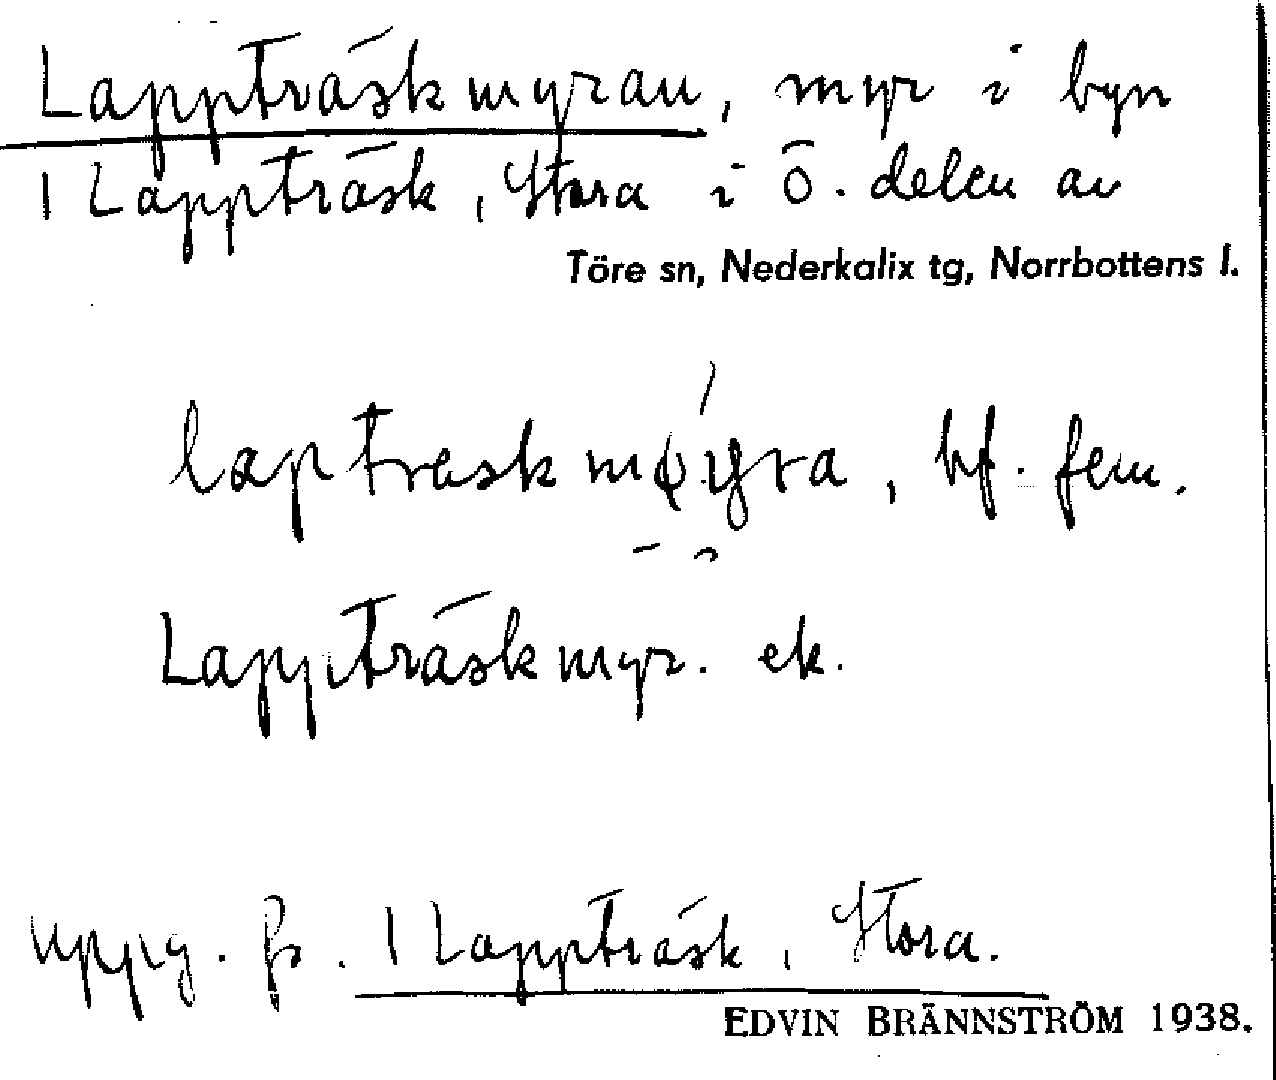 Lappträskmyran, myr i byn
1 Lappträsk, Stora i ö. delen av
Töre sn, Nederkalix tg, Norrbottens l.
laptraskmøyra, bf. fem.
Lappträskmyr. ek.
uppg. fr. 1 Lappträsk, Stora.
EDVIN BRÄNNSTRÖM 1938.